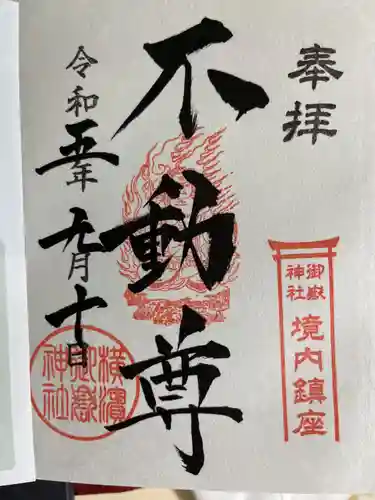 奉拝
御嶽神社
境内鎮座
不動尊
令和五年九月十日
横濱御嶽神社